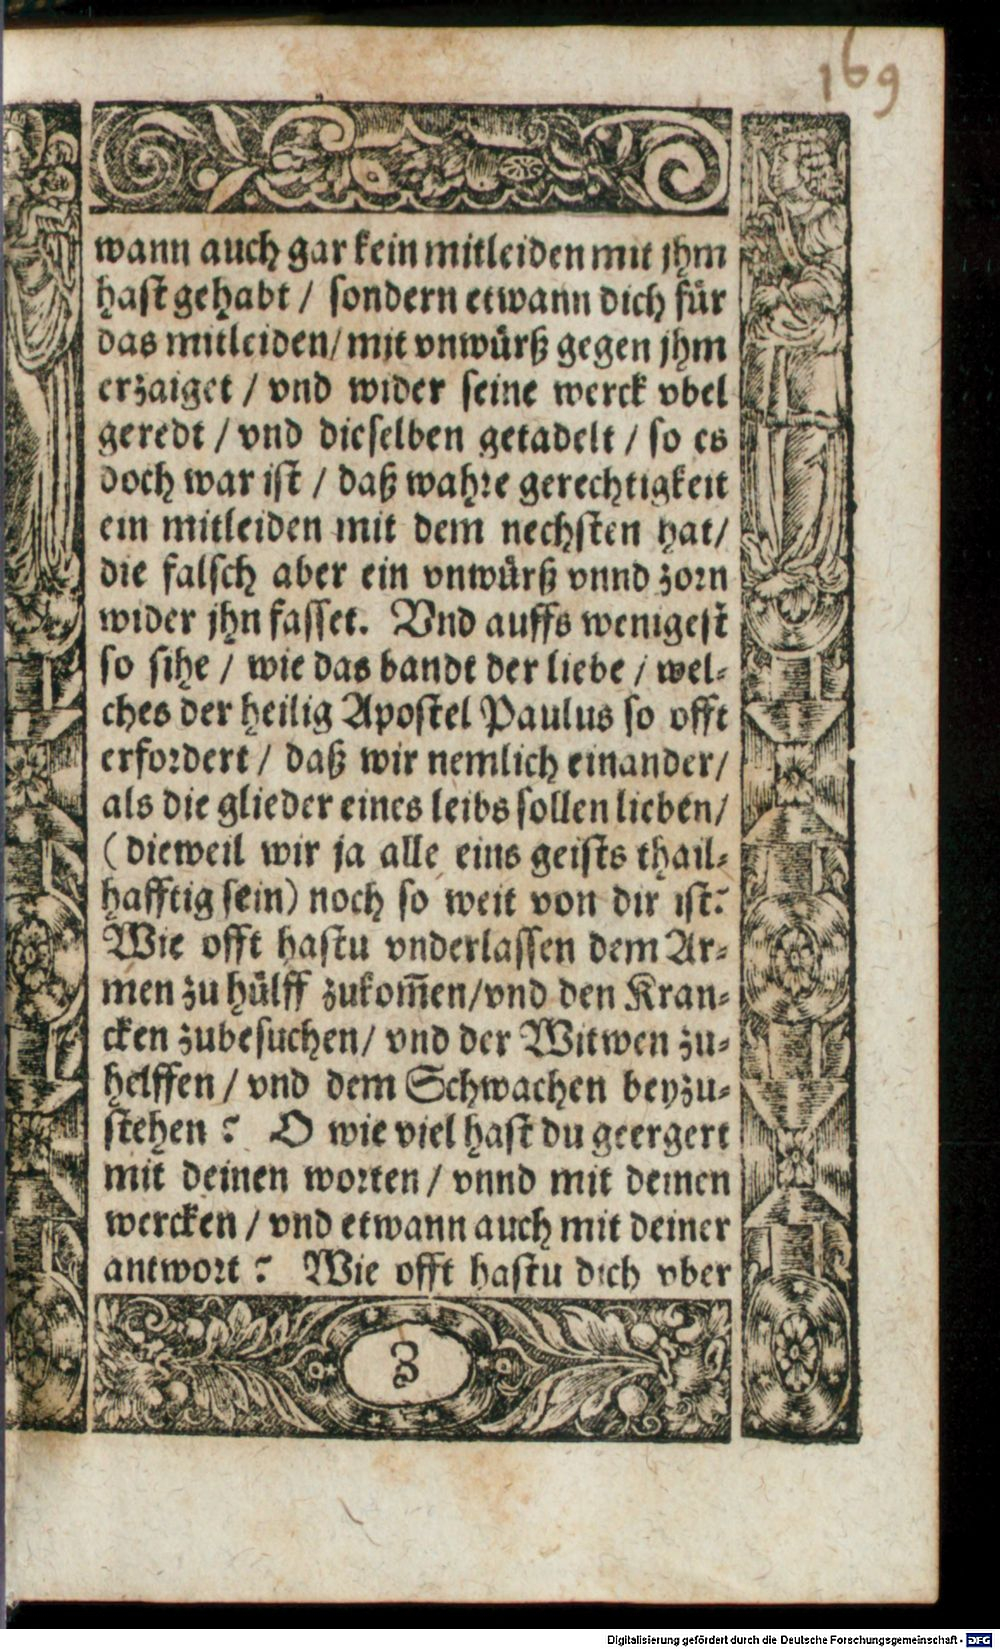 169
wann auch gar kein mitleiden mit jhm
hast gehabt / sondern etwann dich für
das mitleiden / mit vnwürß gegen jhm
erzaiget / vnd wider seine werck vbel
geredt / vnd dieselben getadelt / so es
doch war ist / daß wahre gerechtigkeit
ein mitleiden mit dem nechsten hat /
die falsch aber ein vnwürß vnnd zorn
wider jhn fasset. Vnd auffs wenigest
so sihe / wie das bandt der liebe / wel-
ches der heilig Apostel Paulus so offt
erfordert / daß wir nemlich einander /
als die glieder eines leibs sollen lieben /
(dieweil wir ja alle eins geists thail-
hafftig sein) noch so weit von dir ist?
Wie offt hastu vnderlassen dem Ar-
men zu hülff zukom̃en / vnd den Kran-
cken zubesuchen / vnd der Witwen zu-
helffen / vnd dem Schwachen beyzu-
stehen? O wie viel hast du geergert
mit deinen worten / vnnd mit deinen
wercken / vnd etwann auch mit deiner
antwort? Wie offt hastu dich vber
Z
Digitalisierung gefördert durch die Deutsche Forschungsgemeinschaft - DFG